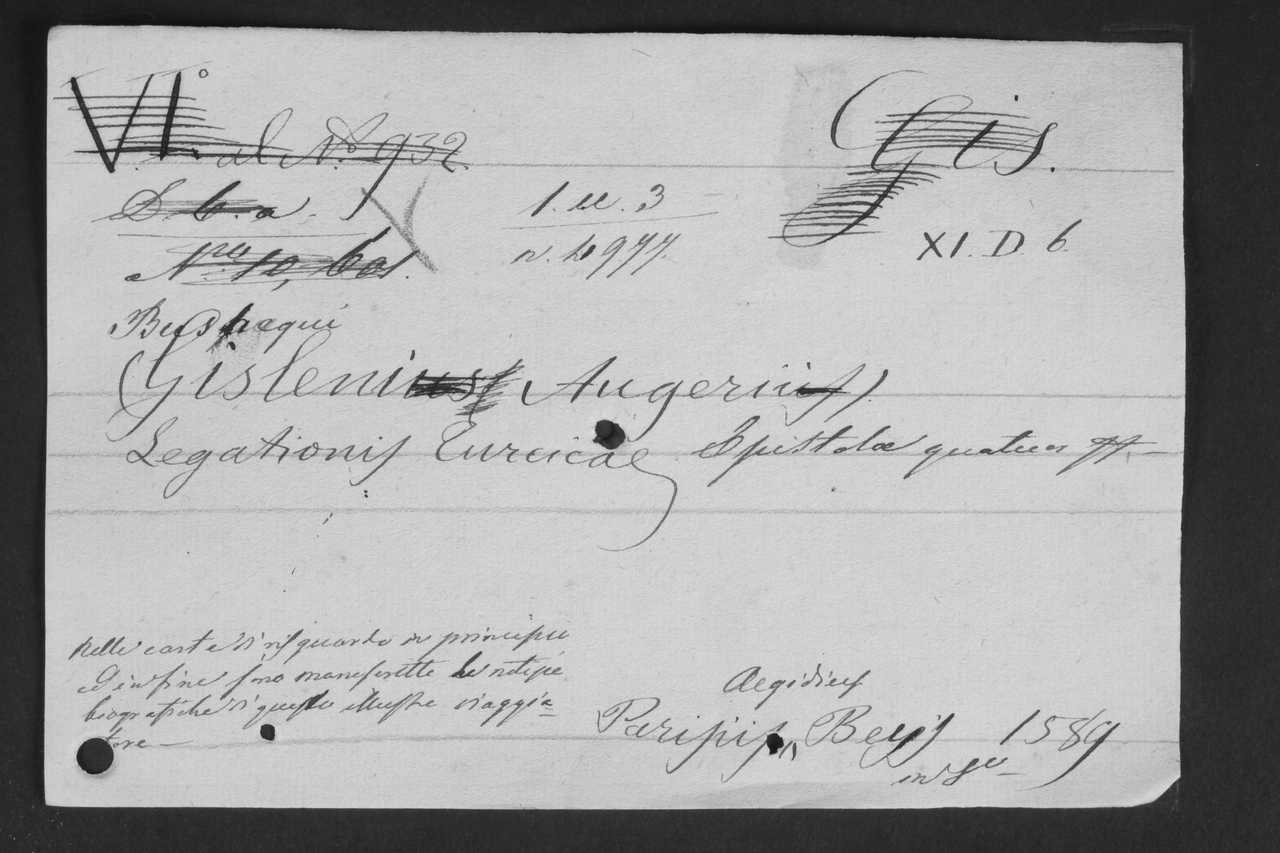 VI.° al N.° 932
Gis.
S. b. a.
1. u. 3
N.ro 10,601.
n. 4977.
XI. D. 6
Busbaequi
(Gislenius Augerius)
Legationis Turcicae Epistolae quatuor
Nelle carte di risguardo in principio
ed in fine sono manoscritte le notizie
biografiche di questo illustre viaggia=
tore —
Aegidius
Parisiis, Beys 1589
in 8°